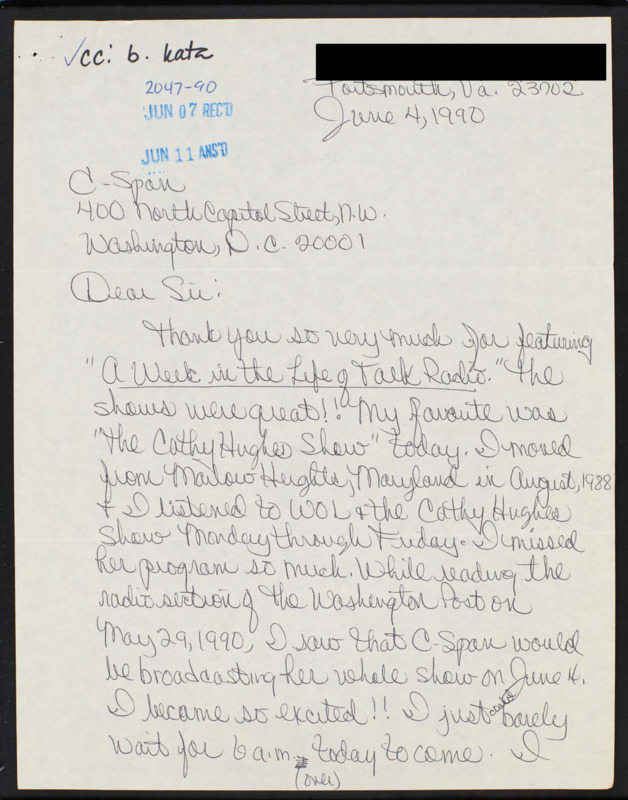 ✓cc: b. katz
2047-90
JUN 07 REC'D
JUN 11 ANS'D
Portsmouth, Va. 23702
June 4, 1990
C-Span
400 North Capitol Street, N.W.
Washington, D.C. 20001
Dear Sir:
Thank you so very much for featuring
"A Week in the Life of Talk Radio." The
shows were great!! My favorite was
"The Cathy Hughes Show" today. I moved
from Marlow Heights, Maryland in August, 1988
& I listened to WOL & the Cathy Hughes
Show Monday through Friday. I missed
her program so much. While reading the
radio section of the Washington Post on
May 29, 1990, I saw that C-Span would
be broadcasting her whole show on June 4.
I became so excited!! I just could barely
wait for 6 a.m. today to come. I
(over)